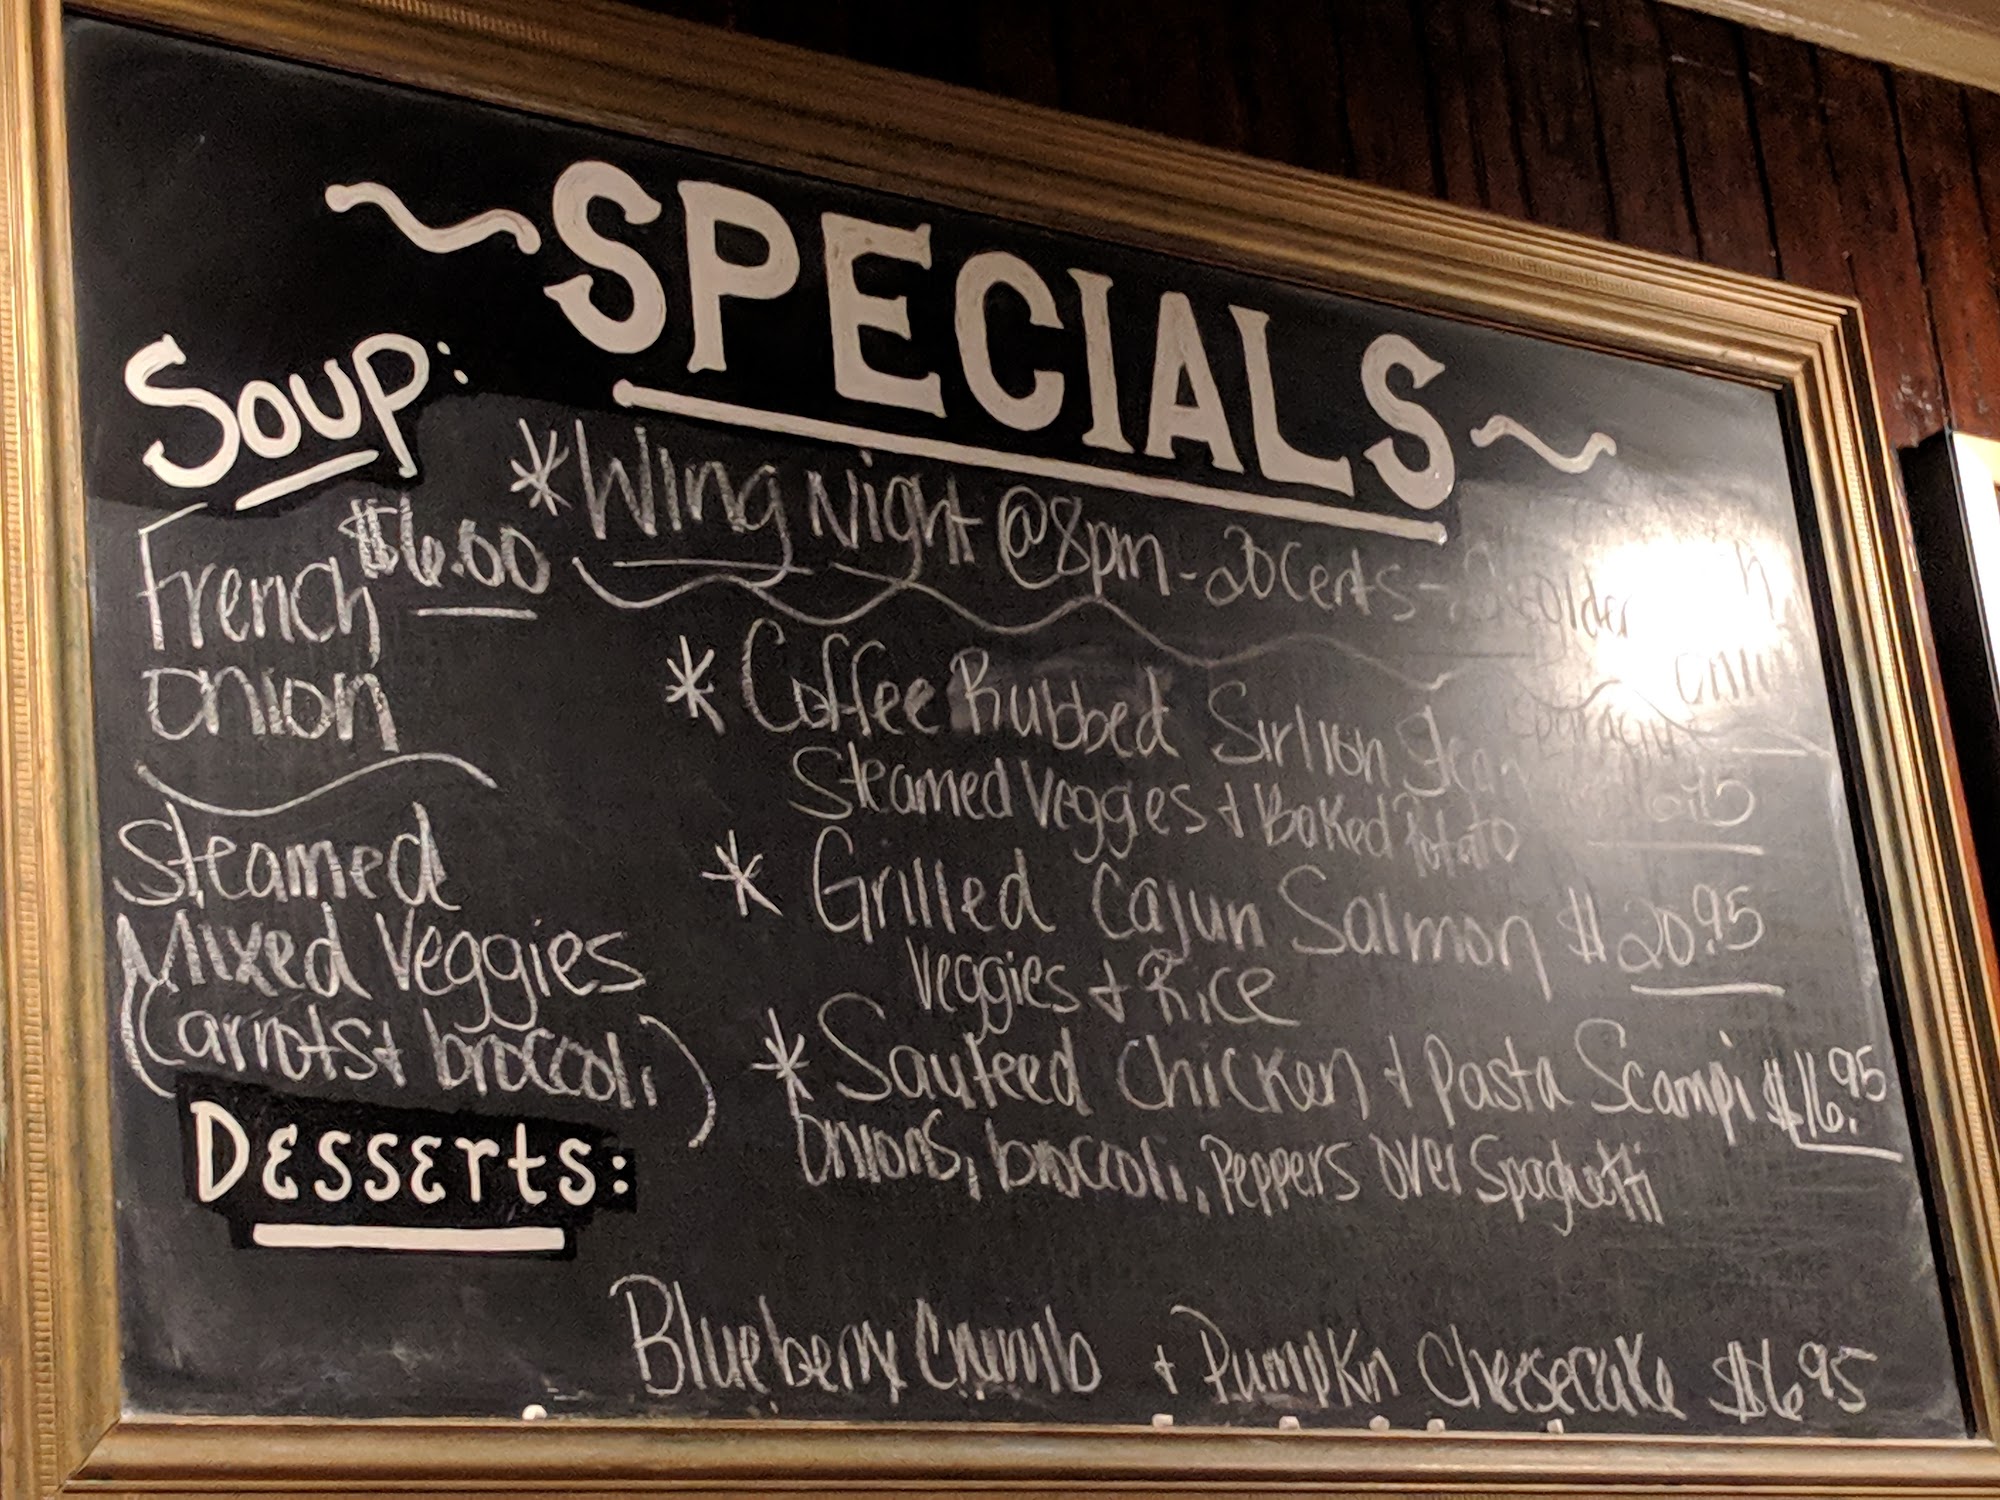 ~SPECIALS~
Soup:
French $6.00
onion
Steamed
Mixed Veggies
(Carrots + broccoli)
Desserts:
*Wing Night @8pm - 20 Cents -
*Coffee Rubbed Sirlion
Steamed Veggies + Baked Potato
*Grilled Cajun Salmon $20.95
Veggies + Rice
*Sauteed Chicken + Pasta Scampi $16.95
Onions, broccoli, Peppers over Spaghetti
Blueberry Crumb + Pumpkin Cheesecake $6.95